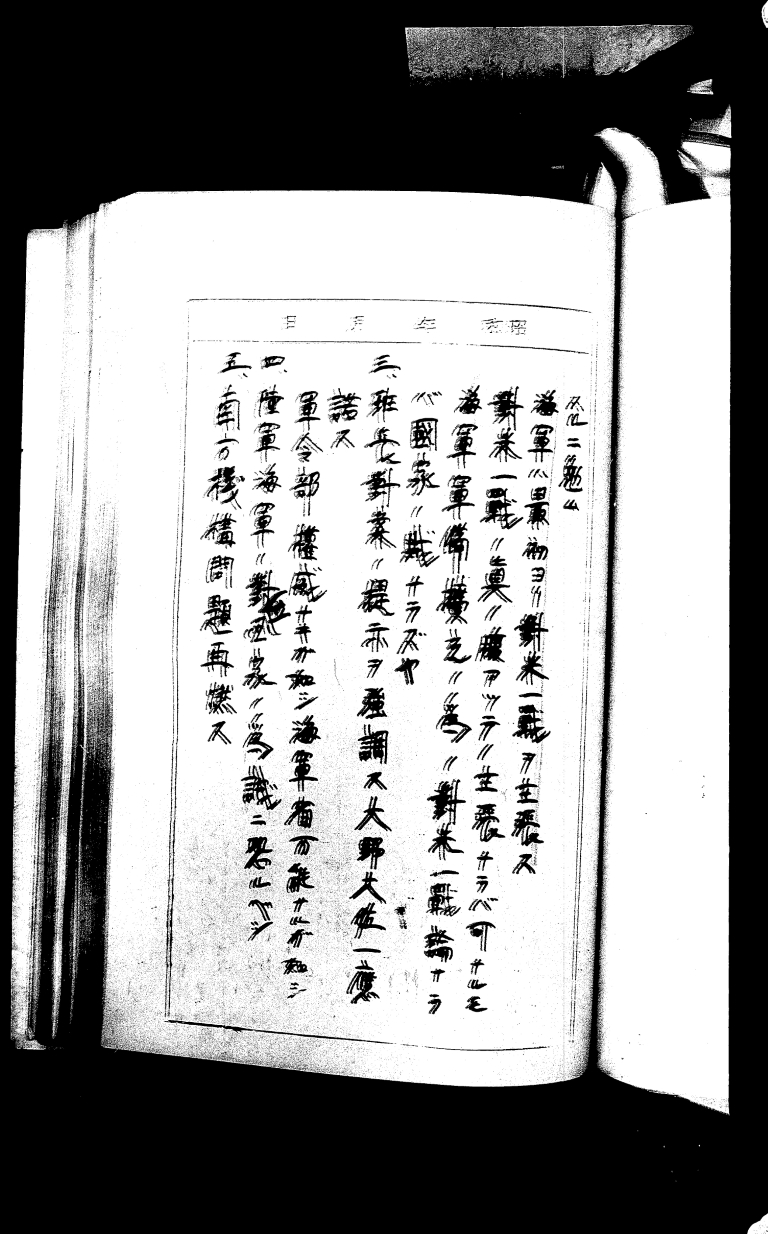 昭和 年 月 日
スルニ勉ム
海軍ハ最初ヨリ対米一戦ヲ主張ス
対米一戦ノ真ノ腹アツテノ主張ナラバ可ナルモ
海軍軍備拡充ノ為ノ対米一戦論ナラ
バ国家ノ賊ナラズヤ
三、班長対案ノ提示ヲ強調ス大野大佐一応
諾ス
軍令部ノ権威ナキガ如シ海軍省万能ナルガ如シ
四、陸軍海軍ノ対立国家ノ為誠ニ恐ルベシ
五、南方機構問題再燃ス